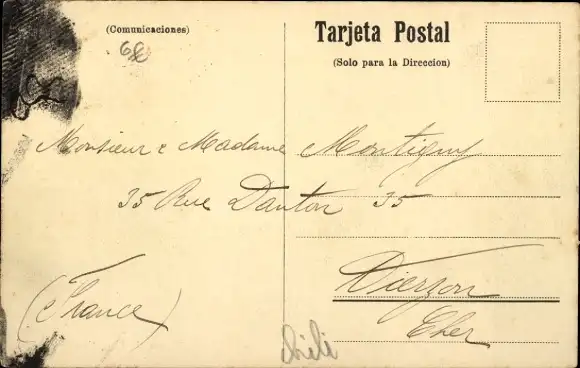 (Comunicaciones)
Tarjeta Postal
(Solo para la Direccion)
Monsieur & Madame Montigny
35 Rue Danton 35
Vierzon
(France)
Cher
Chili